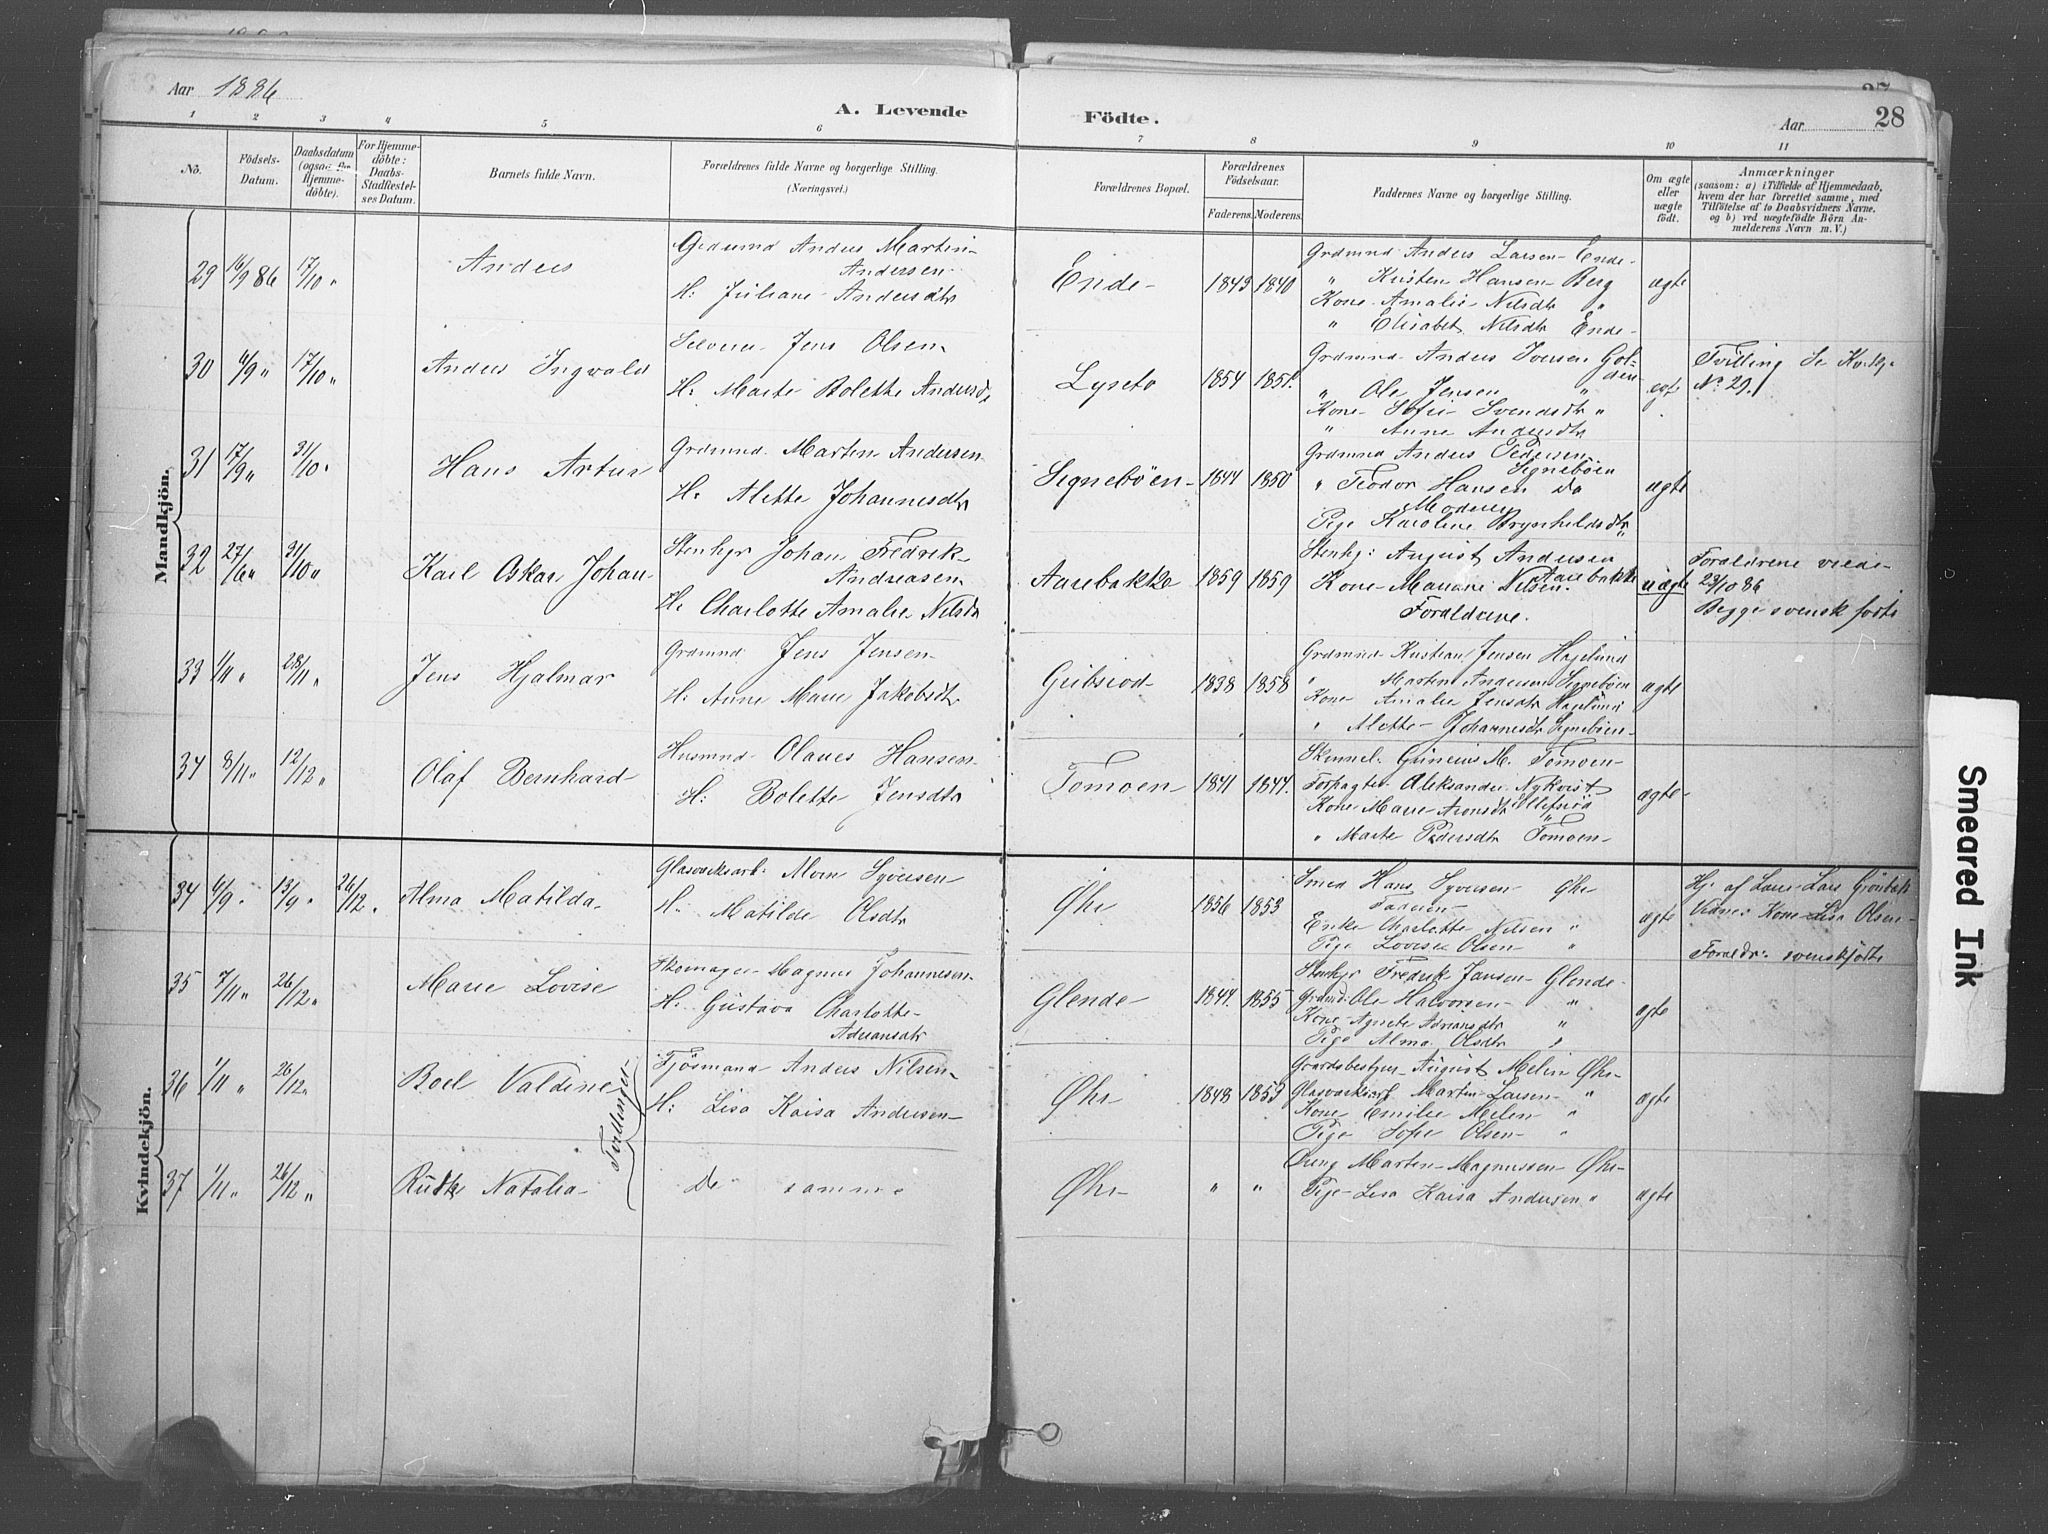 Aar 1886
A. Levende Födte.
Aar 28
1 2 3 4 5 6 7 8 9 10 11
No.
Födsels-Datum.
Daabsdatum (ogsaa for Hjemme-döbte).
For Hjemme-döbte: Daabs-Stadfæstel-ses Datum.
Barnets fulde Navn.
Forældrenes fulde Navne og borgerlige Stilling.
(Næringsvei.)
Forældrenes Bopæl.
Forældrenes Födselsaar.
Faderens. Moderens.
Faddernes Navne og borgerlige Stilling.
Om ægte eller uægte födt.
Anmærkninger
(saasom: a) i Tilfælde af Hjemmedaab,
hvem der har forrettet samme, med
Tilföielse af to Daabsvidners Navne.
og b) ved uægtefödte Börn An-
melderens Navn m. V.)
Mandkjön.
29 16/9 86 17/10 "
Anders
Grdmnd Anders Martin
Andersen
H: Juliane Andersdtr
Ende
1843 1840
Grdmnd Anders Larsen Ende
" Kristen Hansen Berg
Kone Amalie Nilsdtr "
" Elisabet Nilsdtr Ende
ægte
30 4/9 " 17/10 "
Anders Ingvald
Jens Olsen
H: Marte Bolette Andersd.
Lyseto
1854 1851.
Grdmnd Anders Iversen
" Ole Jensen "
Kone Sofie Svendsdtr "
" Anne Andersdtr
egte
Tvilling Se Kvkj.
No 29.
31 17/9 " 31/10 "
Hans Artur
Grdmnd Martin Andersen
H: Alette Johannesdtr
Signebøen
1844 1850
Grdmnd Anders Pedersen
Signebøen
" Teodor Hansen Do
Moderen
Pige Karoline Brynhildsdtr "
ægte
32 27/6 " 31/10 "
Karl Oskar Johan
Stenhgr Johan Fredrik
Andreasen
H: Charlotte Amalie Nilsd
Aarebakke
1859 1859
Stenhg: August Andersen
Aarebakke
Kone Mariane Nilsen.
Foraldrene.
uægte
Foraldrene viede
23/10 86
Begge svensk fødte
33 1/11 " 28/11 "
Jens Hjalmar
Grdmnd Jens Jensen
H: Anne Marie Jakobsdtr
Gribsrød
1838 1858
Grdmnd Kristian Jensen Hagelund
" Martin Andersen Signebøen
Kone Amalie Jensdtr Hagelund
" Alette Johannesdtr Signebøen
ægte
34 8/11 " 12/12 "
Olaf Bernhard
Husmnd Olaves Hansen
H: Bolette Jensdtr
Tomoen
1841 1844.
M. Tomoen
Forpagter Aleksander Nykvist
Kone Marie Aronsdtr "
" Marte Pedersdtr Tomoen
ægte
Kvindekjön.
34 4/9 " 13/9 " 26/12 "
Alma Matilda
Glasværksarb: Alvin Syversen
H: Matilde Olsdtr
Øhr
1856 1853
Smed Hans Syversen Øhr
Faderen
Enke Charlotte Nilsen "
Pige Lovise Olsen "
ægte
Hj. af Lars Grönbæk
Vidne: Kone Lisa Olsen
Foraldr: svenskfødte
35 7/11 " 26/12 "
Marie Lovise
Skomager Magnus Johannesen
H: Gustava Charlotte
Adriansdtr
Glende
1844. 1855
Stenhgr Fredrik Jansen Glende
Grdmd: Ole Halvorsen "
Kone Agnete Adriansdtr "
Pige Alma Olsdtr "
ægte
36 1/11 " 26/12 "
Boel Valdine
Tvillinger
Fjösmand Anders Nilsen
H: Lisa Kaisa Andersen
Øhr
1848 1853
Gaardsbestyrer August Melin Øhr
Glasværksarb Martin Larsen "
Kone Emilie Melin "
Pige Sofie Olsen "
ægte
37 1/11 " 26/12 "
Ruth Natalia
De samme
Øhr
" "
Dreng Martin Magnussen Øhr
Pige Lisa Kaisa Andersen "
ægte
Smeared Ink